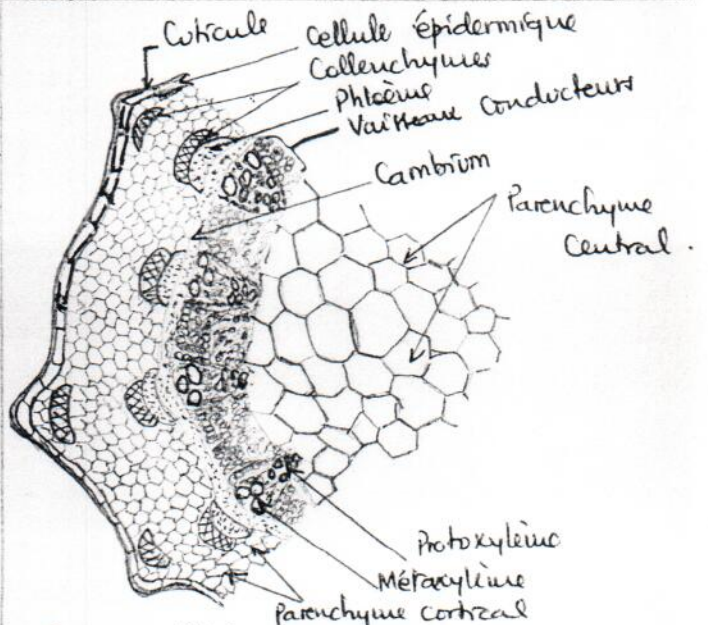 Cuticule
Cellule épidermique
Collenchymes
Phloème
Vaisseaux conducteurs
Cambium
Parenchyme
Central.
Protoxylème
Métaxylème
Parenchyme cortical